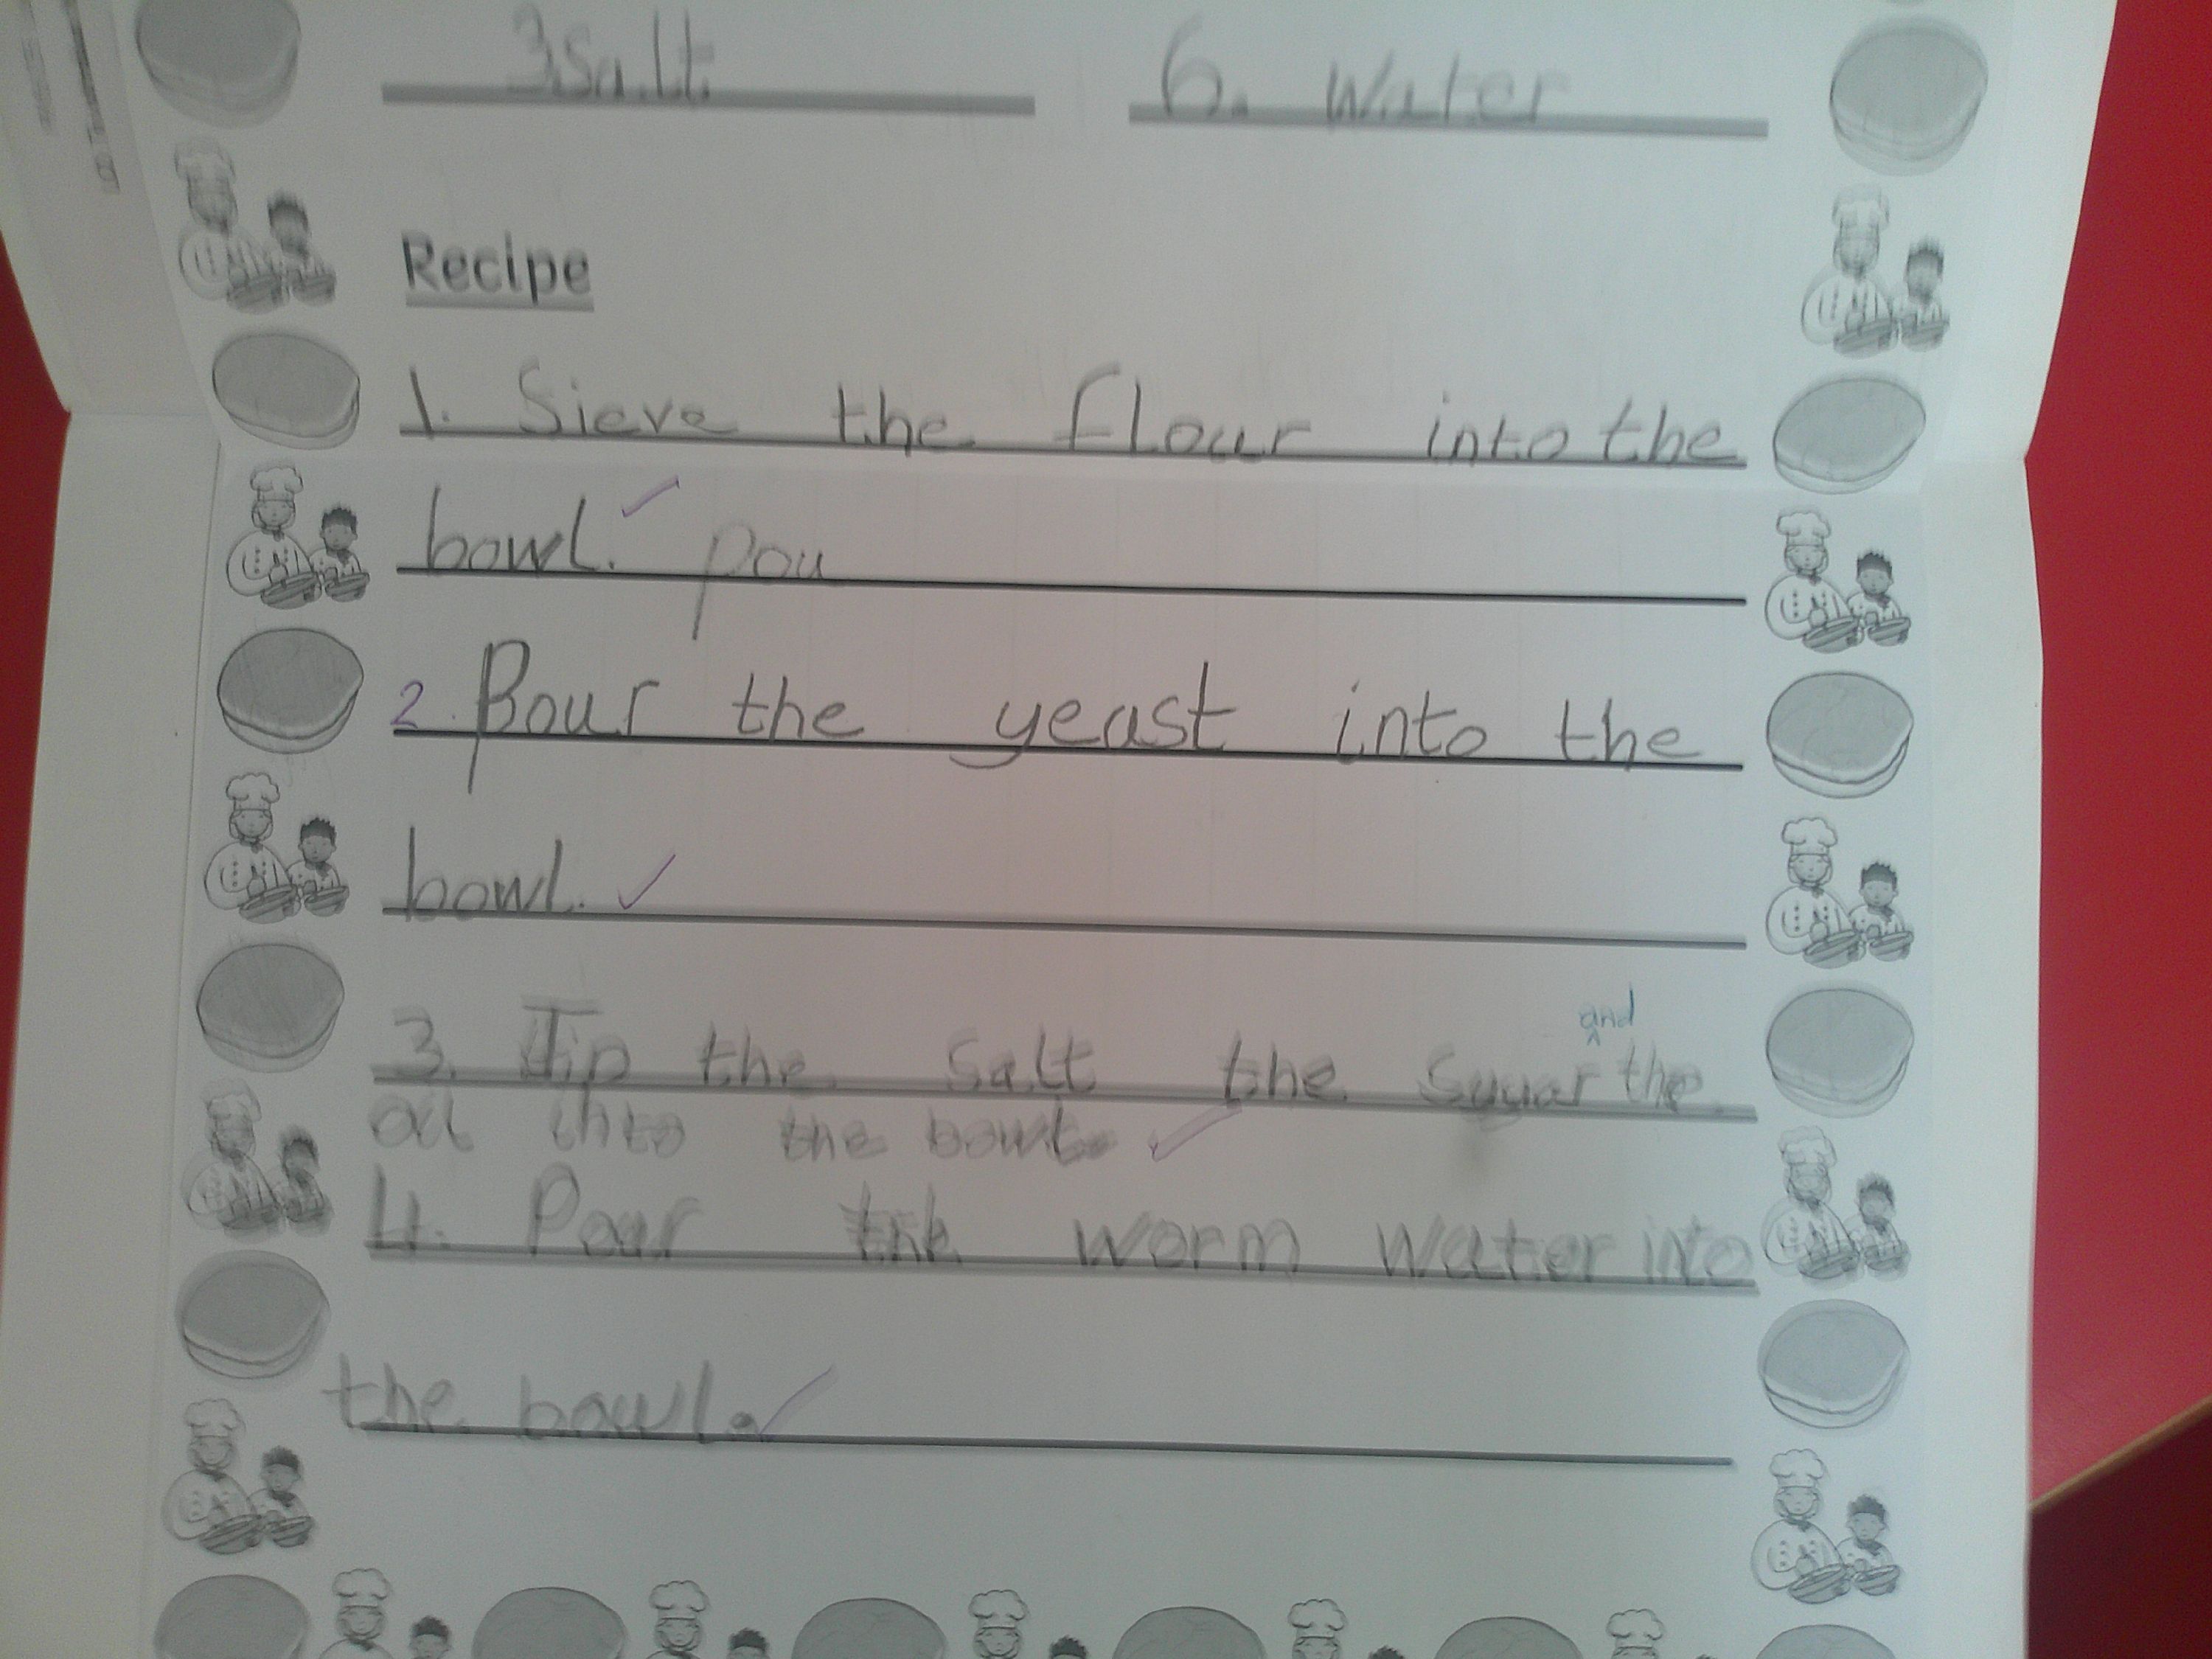 3. Salt.
6. Water
Recipe
1. Sieve the flour into the
bowl. pou
2. Pour the yeast into the
bowl.
and
3. Tip the salt the sugar the
oil into the bowl.
4. Pour the worm water into
the bowl.